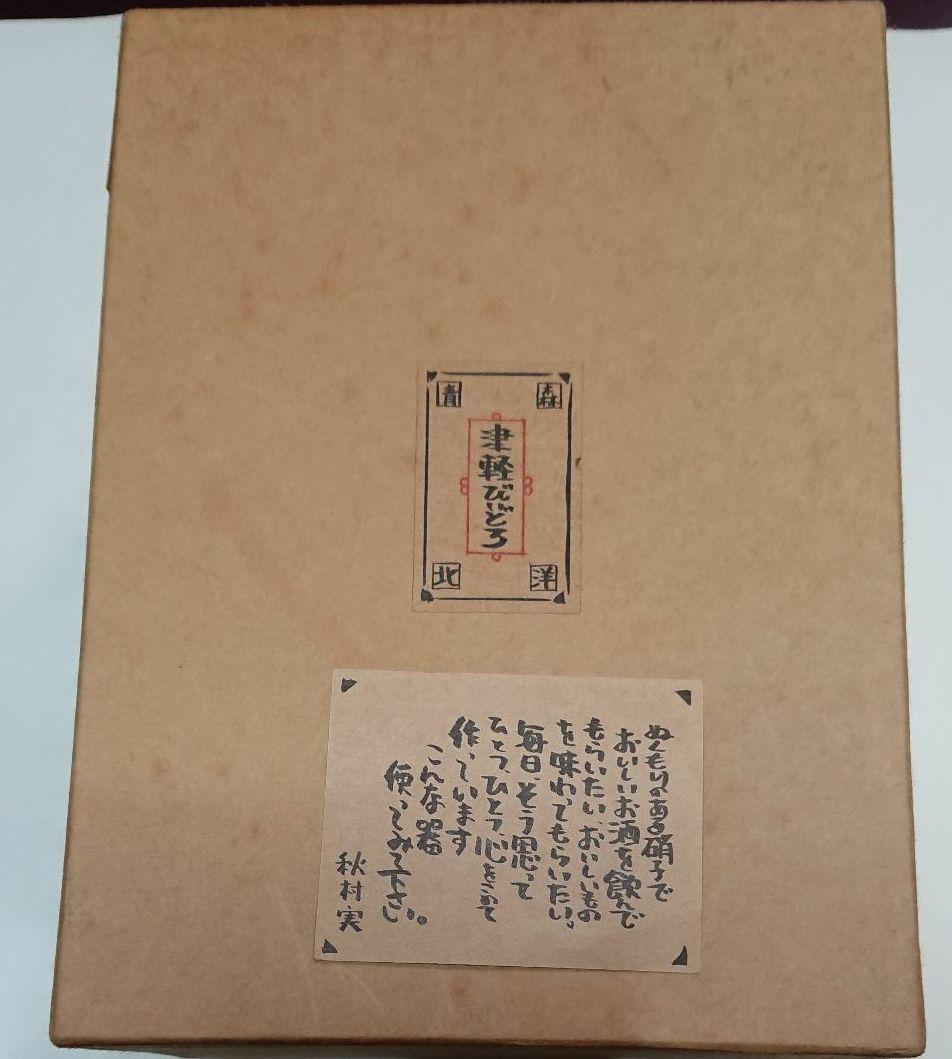 青森
津軽びいどろ
北洋
ぬくもりのある硝子で
おいしいお酒を飲んで
もらいたい、おいしいもの
を味わってもらいたい。
毎日、そう思って
ひとつ、ひとつ、心をこめて
作っています
こんな器
使ってみて下さい。
秋村実